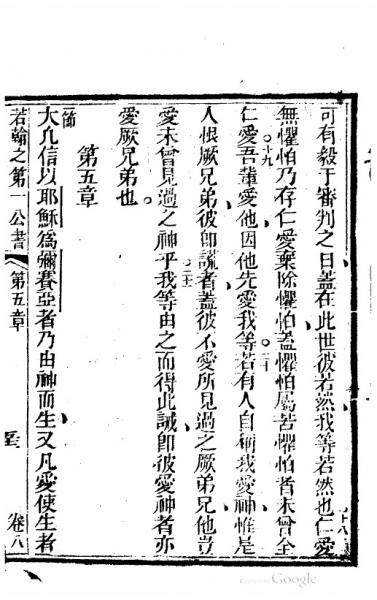 可有毅于審判之日蓋在此世彼若然我等若然也仁愛
十八
無懼怕乃存仁愛棄除懼怕蓋懼怕屬苦懼怕者未曾全
十九
仁愛吾輩愛他因他先愛我等若有人自稱我愛神惟是
二十
人恨厥兄弟彼即謊者蓋彼不愛所見過之厥弟兄他豈
二十一
愛未曾見過之神乎我等由之而得此誡即彼愛神者亦
愛厥兄弟也
第五章
一節
大凡信以耶穌為彌賽亞者乃由神而生又凡愛使生者
若翰之第一公書 第五章 卷八
Google